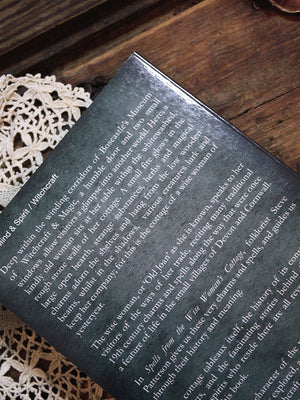 Mind & Spirit / Witchcraft
Deep within the winding corridors of Boscastle's Museum
of Witchcraft & Magic, a humble door and two small
windows allow visitors a glimpse into another world. Here a
old woman sits at her table within the whitewashed,
rough stone walls of her cottage. A small fire glows in the
large open hearth, strange substances, herbs, and magical
charms adorn the shelves and hang from the low wooden
beams, whilst in the shadows, various creatures lurk and
keep her company, for this is the cottage of a wise woman of
yesteryear.
The wise woman, or 'Old Joan' as she is known, speaks to her
visitors of the ways of her trade; reciting many traditional
19th century charms and spells along the way that were once
a feature of life in the small villages of Devon and Cornwall.
In Spells from the Wise Woman's Cottage, folklorist Steve
Patterson gives us these very charms and spells, and guides us
through their history and meaning.
cottage tableau itself; the history of its
and this fascinating stories behind
spirits who reside there are all